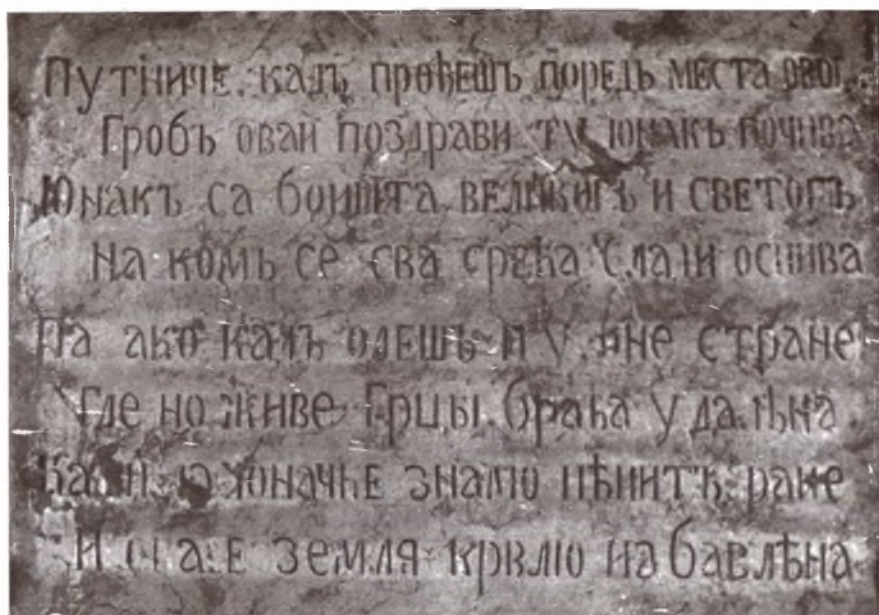 Путниче. кадъ прођешъ поредь места овог
Гробъ оваи поздрави ту юнакъ почива
Юнакъ са боишта великогъ и светогъ
На комъ се сва срећа Слави оснива
Па ако кадъ одешъ и у оне стране
Где но живе Грцы. браћа удалѣна
юначке знамо цѣнитъ. ране
И земля крвлю набавлѣна